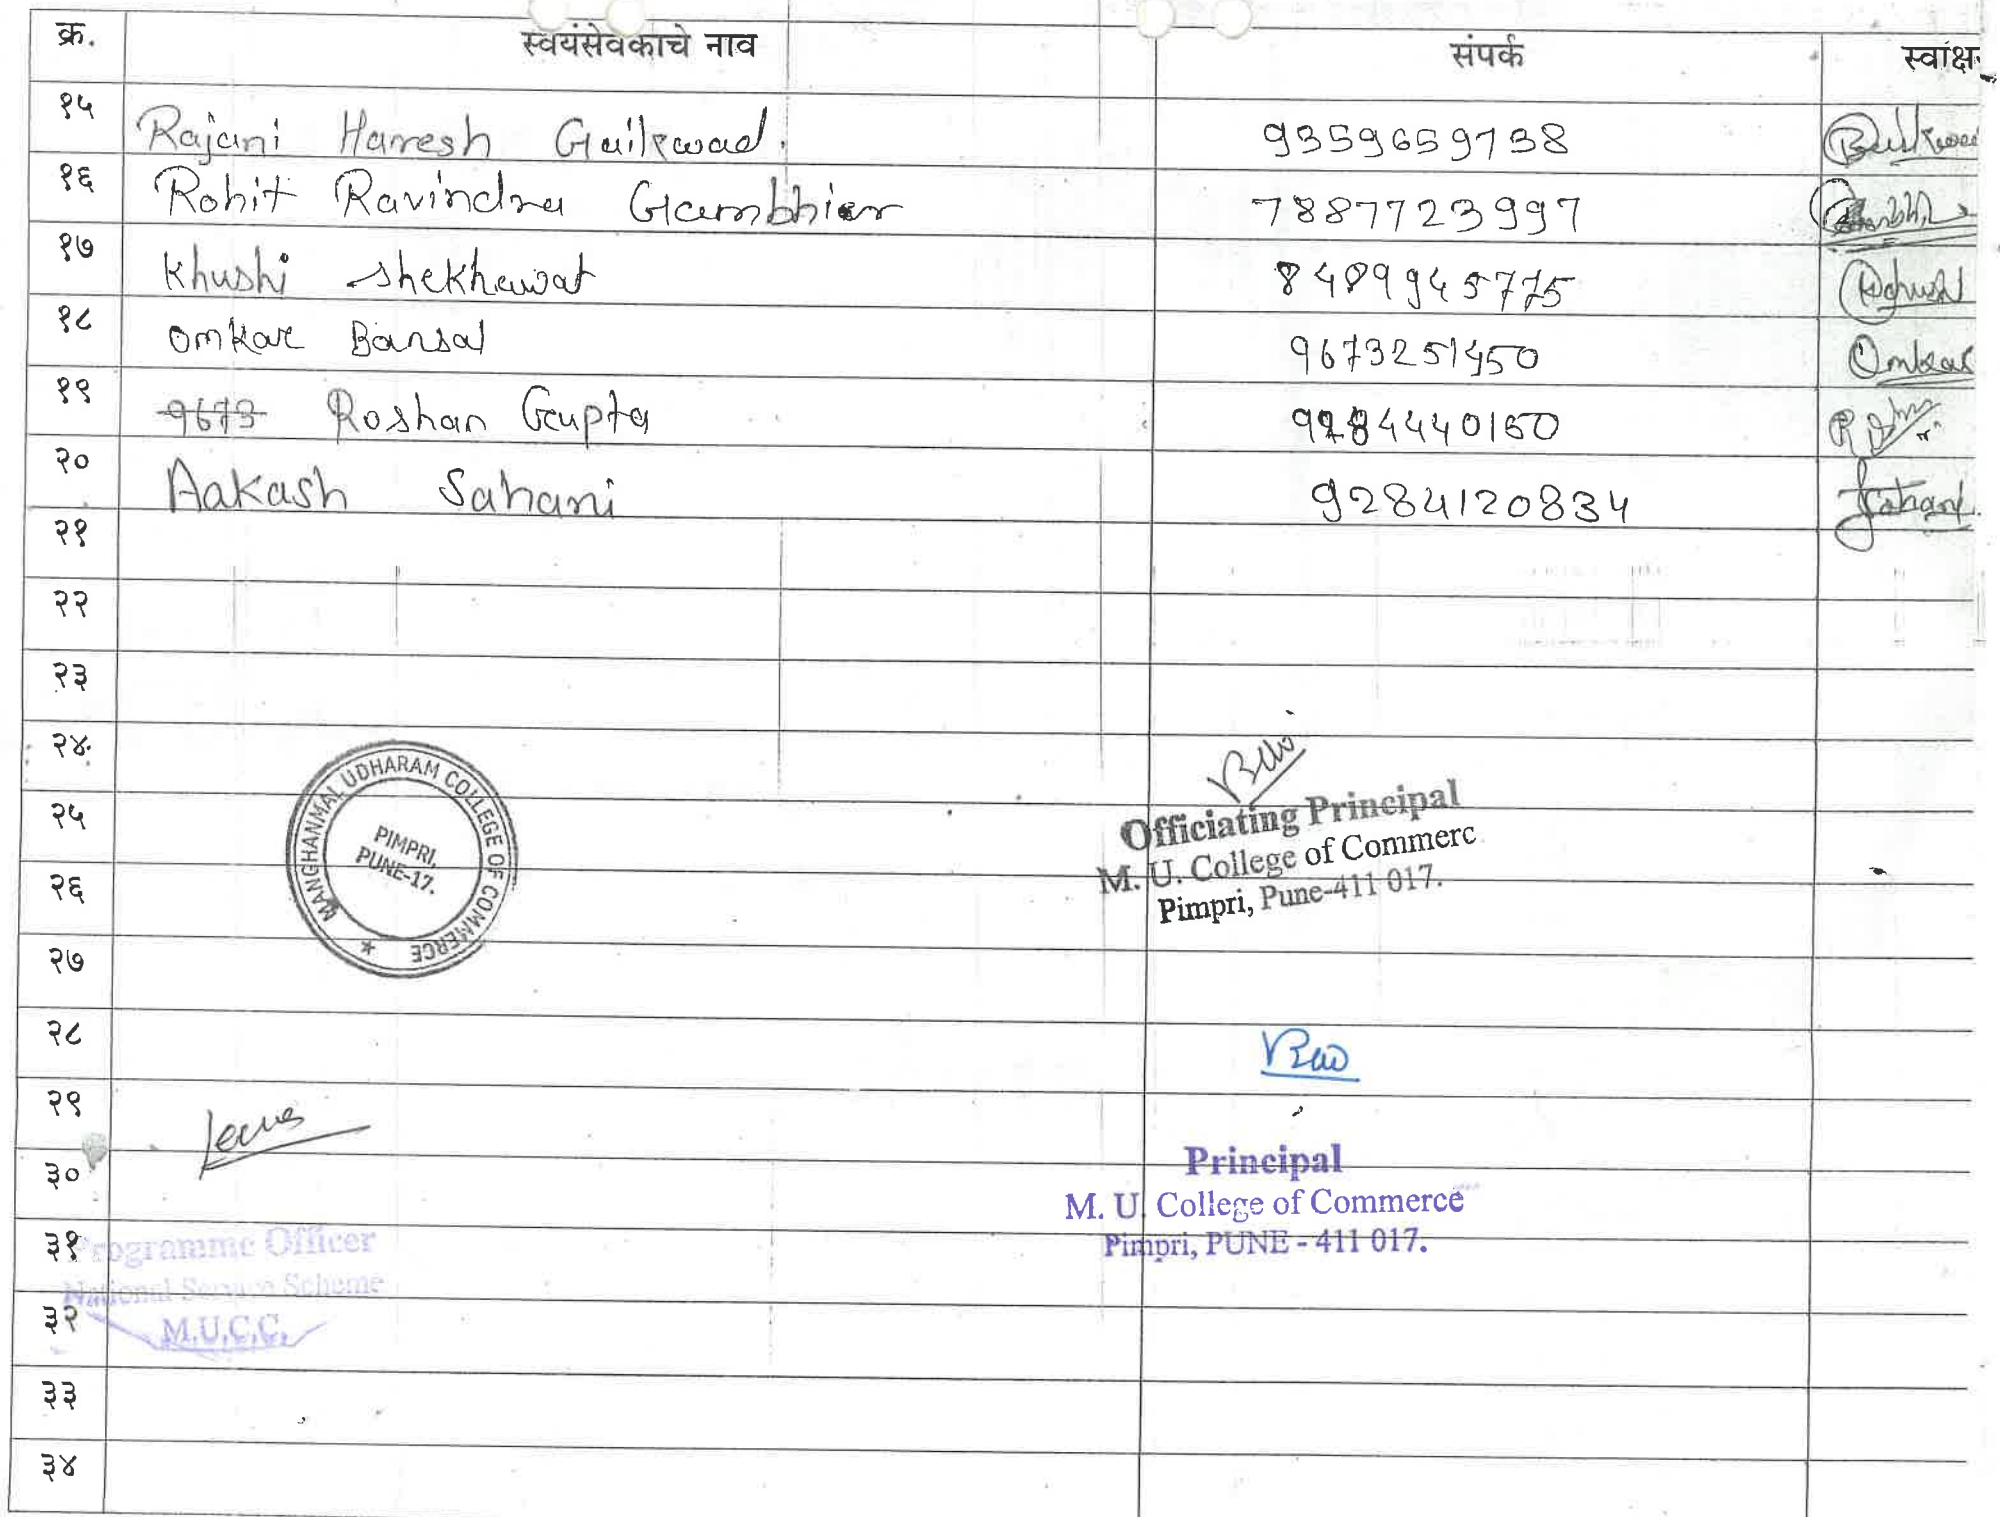 क्र. स्वयंसेवकाचे नाव संपर्क स्वाक्ष
१५ Rajani Harresh Gaikwad. 9359659738
१६ Rohit Ravindra Gambhier 7887723997
१७ Khushi shekhawat 8499945775
१८ Omkar Bansal 9673251450 Omkar
१९ 9673 Roshan Gupta 9284440160
२० Aakash Sahani 9284120834
२१
२२
२३
२४
MANGHANMAL UDHARAM COLLEGE OF COMMERCE
PIMPRI,
PUNE-17.
Officiating Principal
M. U. College of Commerc
Pimpri, Pune-411 017.
२५
२६
२७
२८
२९
३०
Principal
M. U. College of Commerce
Pimpri, PUNE - 411 017.
३१ Programme Officer
National Service Scheme
३२ M.U.C.C.
३३
३४